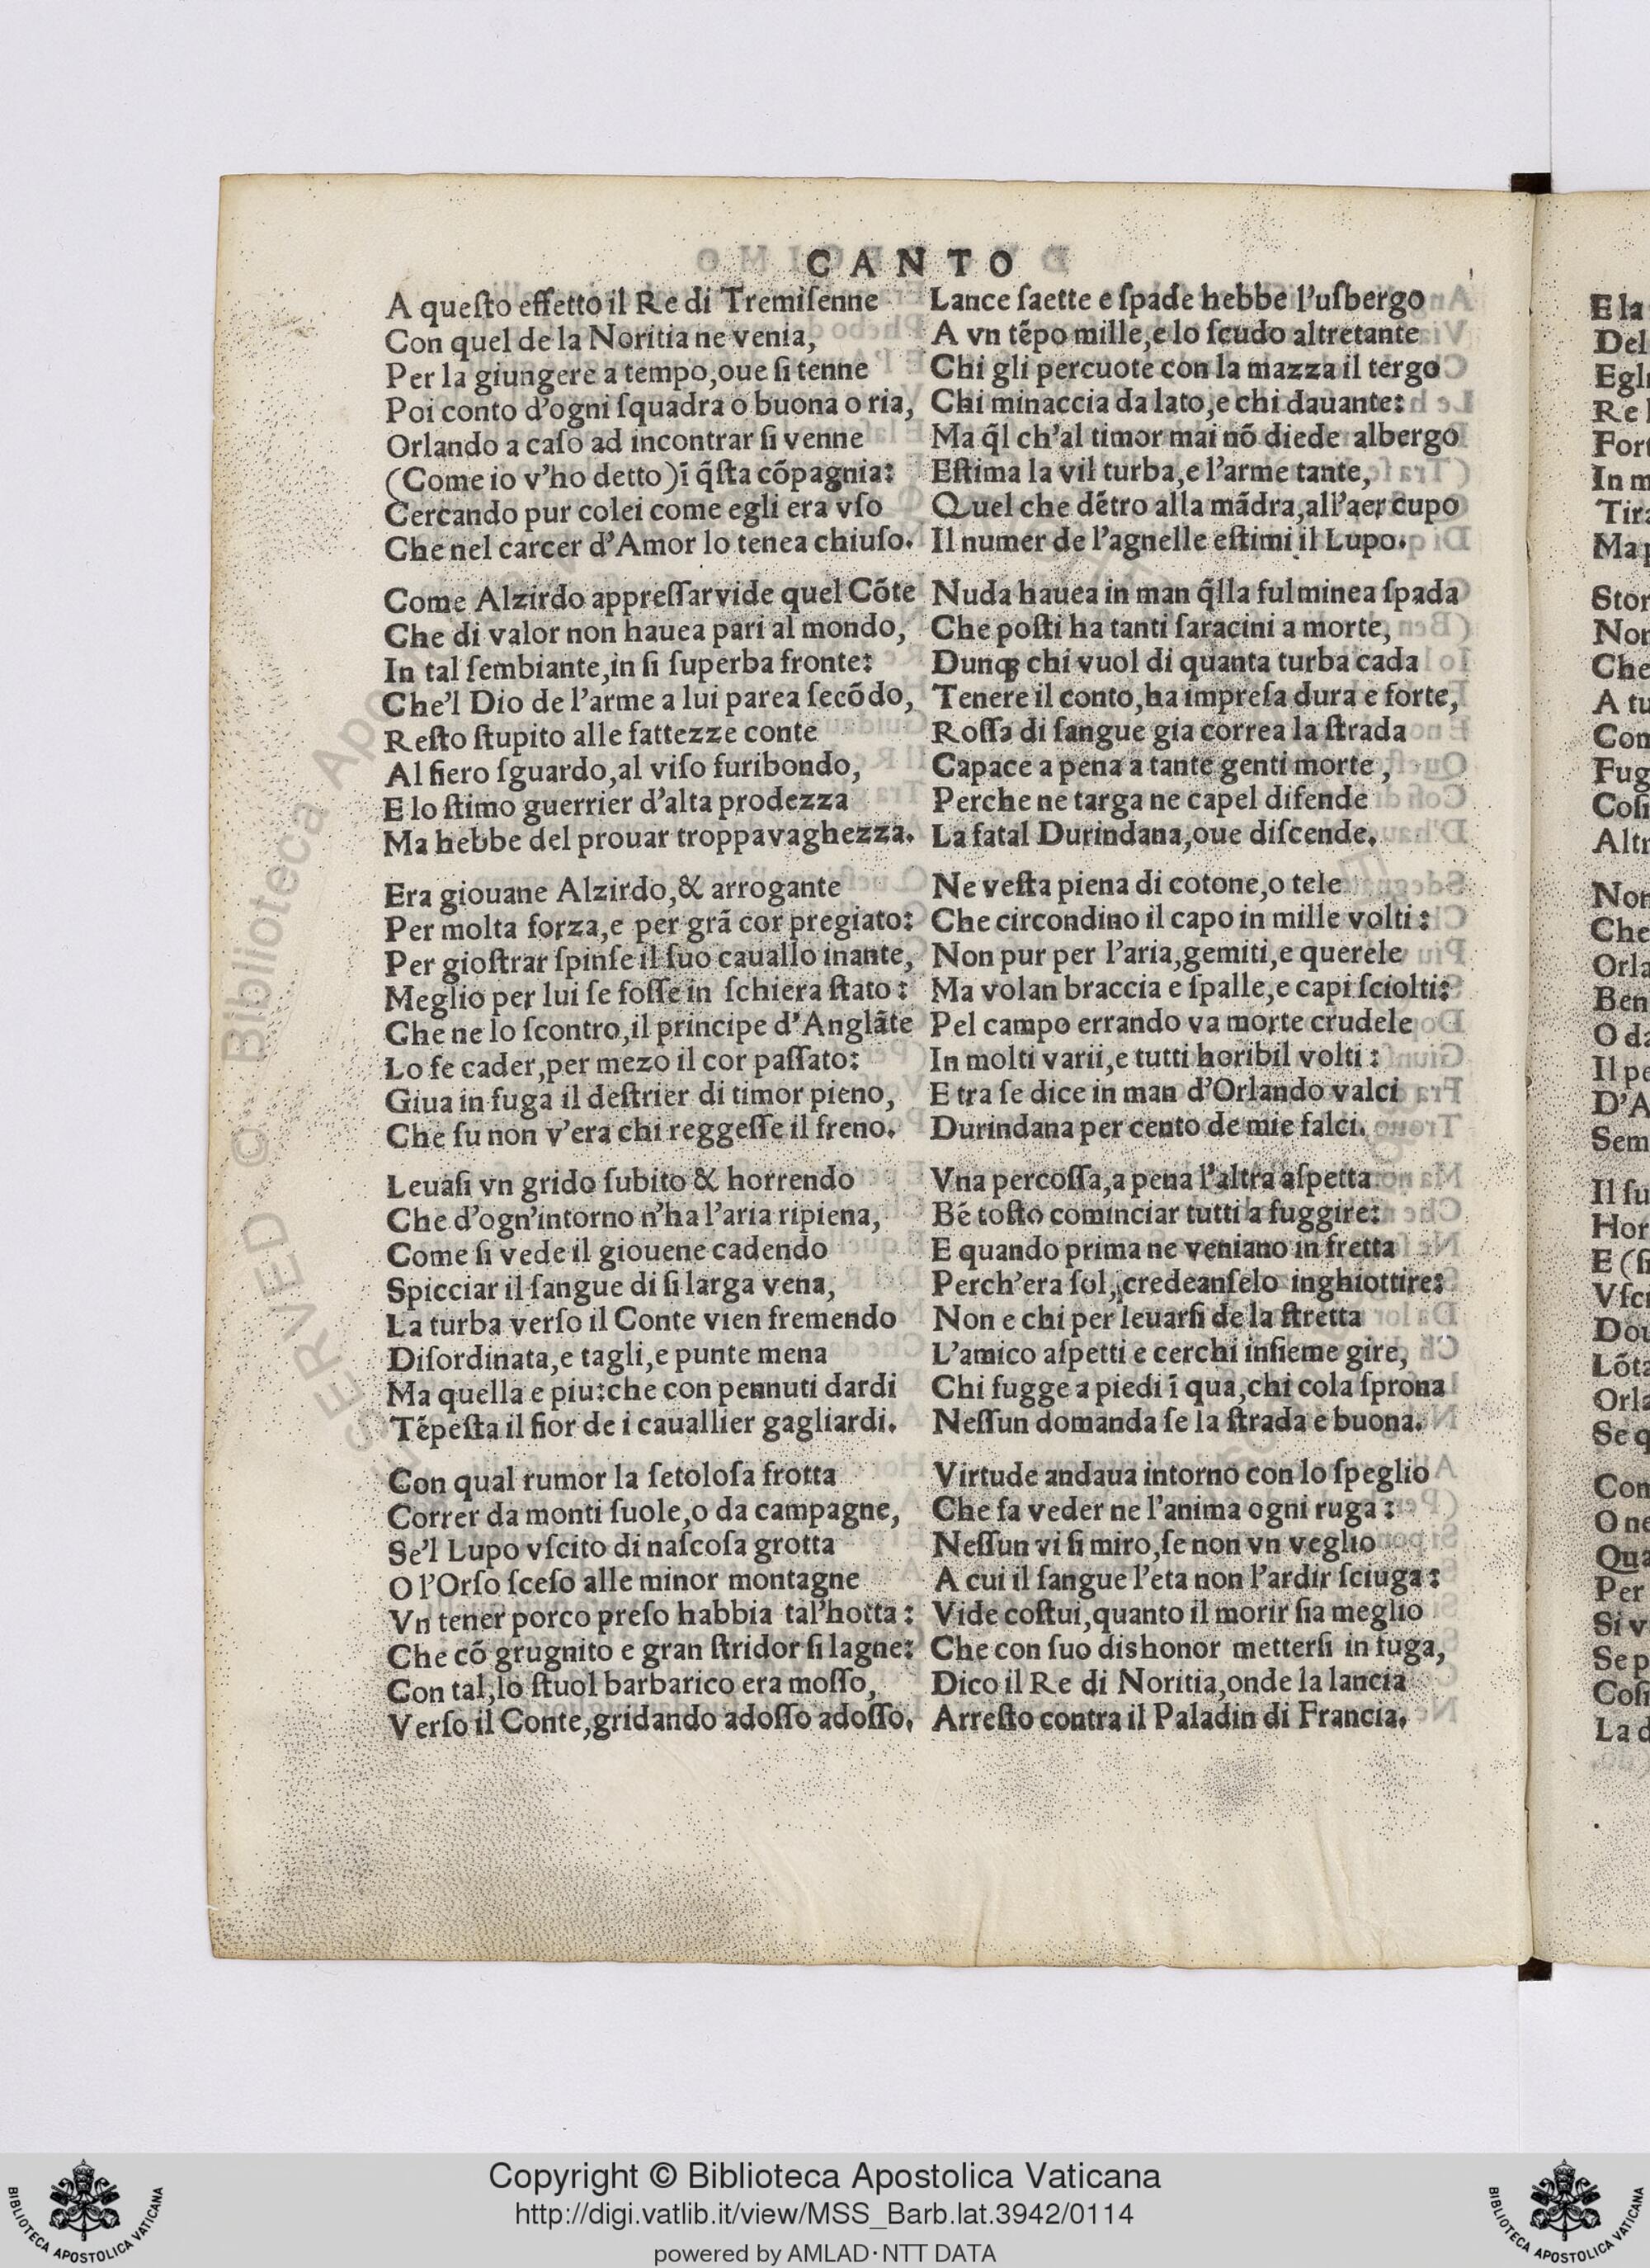 CANTO
A queſto effetto il Re di Tremiſenne
Con quel de la Noritia ne venia,
Per la giungere a tempo,oue ſi tenne
Poi conto d'ogni ſquadra o buona o ria,
Orlando a caſo ad incontrar ſi venne
(Come io v'ho detto)ĩ q̃ſta cõpagnia:
Cercando pur colei come egli era vſo
Che nel carcer d'Amor lo tenea chiuſo.
Come Alzirdo appreſſar vide quel Cõte
Che di valor non hauea pari al mondo,
In tal ſembiante,in ſi ſuperba fronte:
Che'l Dio de l'arme a lui parea ſecõdo,
Reſto ſtupito alle fattezze conte
Al fiero ſguardo,al viſo furibondo,
E lo ſtimo guerrier d'alta prodezza
Ma hebbe del prouar troppa vaghezza.
Era giouane Alzirdo,& arrogante
Per molta forza,e per grã cor pregiato:
Per gioſtrar ſpinſe il ſuo cauallo inante,
Meglio per lui ſe foſſe in ſchiera ſtato:
Che ne lo ſcontro,il principe d'Anglãte
Lo fe cader,per mezo il cor paſſato:
Giua in fuga il deſtrier di timor pieno,
Che ſu non v'era chi reggeſſe il freno.
Leuaſi vn grido ſubito & horrendo
Che d'ogn'intorno n'ha l'aria ripiena,
Come ſi vede il giouene cadendo
Spicciar il ſangue di ſi larga vena,
La turba verſo il Conte vien fremendo
Diſordinata,e tagli,e punte mena
Ma quella e piu:che con pennuti dardi
Tẽpeſta il fior de i cauallier gagliardi.
Con qual rumor la ſetoloſa frotta
Correr da monti ſuole,o da campagne,
Se'l Lupo vſcito di naſcoſa grotta
O l'Orſo ſceſo alle minor montagne
Vn tener porco preſo habbia tal'hotta:
Che cõ grugnito e gran ſtridor ſi lagne:
Con tal,lo ſtuol barbarico era moſſo,
Verſo il Conte,gridando adoſſo adoſſo.
Lance ſaette e ſpade hebbe l'uſbergo
A vn tẽpo mille,e lo ſcudo altretante
Chi gli percuote con la mazza il tergo
Chi minaccia da lato,e chi dauante:
Ma q̃l ch'al timor mai nõ diede albergo
Eſtima la vil turba,e l'arme tante,
Quel che dẽtro alla mãdra,all'aer cupo
Il numer de l'agnelle eſtimi il Lupo.
Nuda hauea in man q̃lla fulminea ſpada
Che poſti ha tanti ſaracini a morte,
Dunqꝫ chi vuol di quanta turba cada
Tenere il conto,ha impreſa dura e forte,
Roſſa di ſangue gia correa la ſtrada
Capace a pena a tante genti morte,
Perche ne targa ne capel difende
La fatal Durindana,oue diſcende.
Ne veſta piena di cotone,o tele
Che circondino il capo in mille volti:
Non pur per l'aria,gemiti,e querele
Ma volan braccia e ſpalle,e capi ſciolti:
Pel campo errando va morte crudele
In molti varii,e tutti horibil volti:
E tra ſe dice in man d'Orlando valci
Durindana per cento de mie falci.
Vna percoſſa,a pena l'altra aſpetta
Bẽ toſto cominciar tutti a fuggire:
E quando prima ne veniano in fretta
Perch'era ſol,credeanſelo inghiottire:
Non e chi per leuarſi de la ſtretta
L'amico aſpetti e cerchi inſieme gire,
Chi fugge a piedi ĩ qua,chi cola ſprona
Neſſun domanda ſe la ſtrada e buona.
Virtude andaua intorno con lo ſpeglio
Che fa veder ne l'anima ogni ruga:
Neſſun vi ſi miro,ſe non vn veglio
A cui il ſangue l'eta non l'ardir ſciuga:
Vide coſtui,quanto il morir ſia meglio
Che con ſuo dishonor metterſi in fuga,
Dico il Re di Noritia,onde la lancia
Arreſto contra il Paladin di Francia.
E la
Del
Egli
Re
Fort
In m
Tira
Ma p
Stor
Non
Che
A tu
Con
Fug
Coſi
Altr
Non
Che
Orla
Ben
O da
Il pe
D'A
Sem
Il ſu
Hor
E (ſi
Vſci
Dou
Lõta
Orla
Se q
Con
O ne
Qua
Per
Si v
Se p
Coſi
La d
Copyright © Biblioteca Apostolica Vaticana
http://digi.vatlib.it/view/MSS_Barb.lat.3942/0114
powered by AMLAD·NTT DATA
BIBLIOTECA APOSTOLICA VATICANA
BIBLIOTECA APOSTOLICA VATICANA